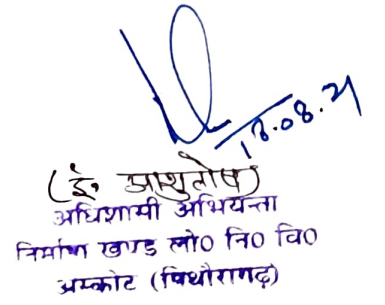 18.08.21
(ई. आशुतोष)
अधिशासी अभियन्ता
निर्माण खण्ड लो0 नि0 वि0
अस्कोट (पिथौरागढ़)